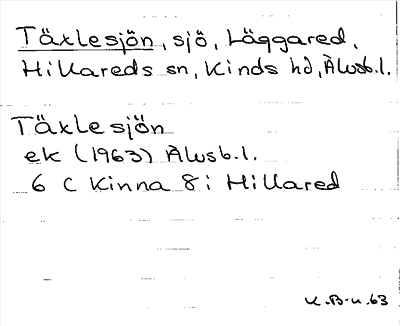 Täxlesjön, sjö, Läggared,
Hillareds sn, Kinds hd, Älvsb.l.
Täxlesjön
ek (1963) Älvsb.l.
6 C Kinna 8i Hillared
K.B-n.63